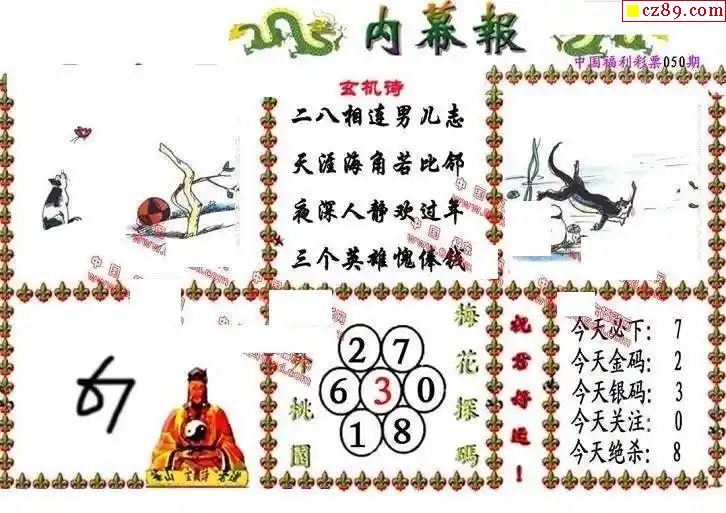 cz89.com
内幕報
中国福利彩票050期
玄机诗
二八相连男儿志
天涯海角若比邻
夜深人静欢过年
三个英雄愧俸钱
27
630
18
外桃園
梅花探碼
祝君好运！
今天必下：7
今天金码：2
今天银码：3
今天关注：0
今天绝杀：8